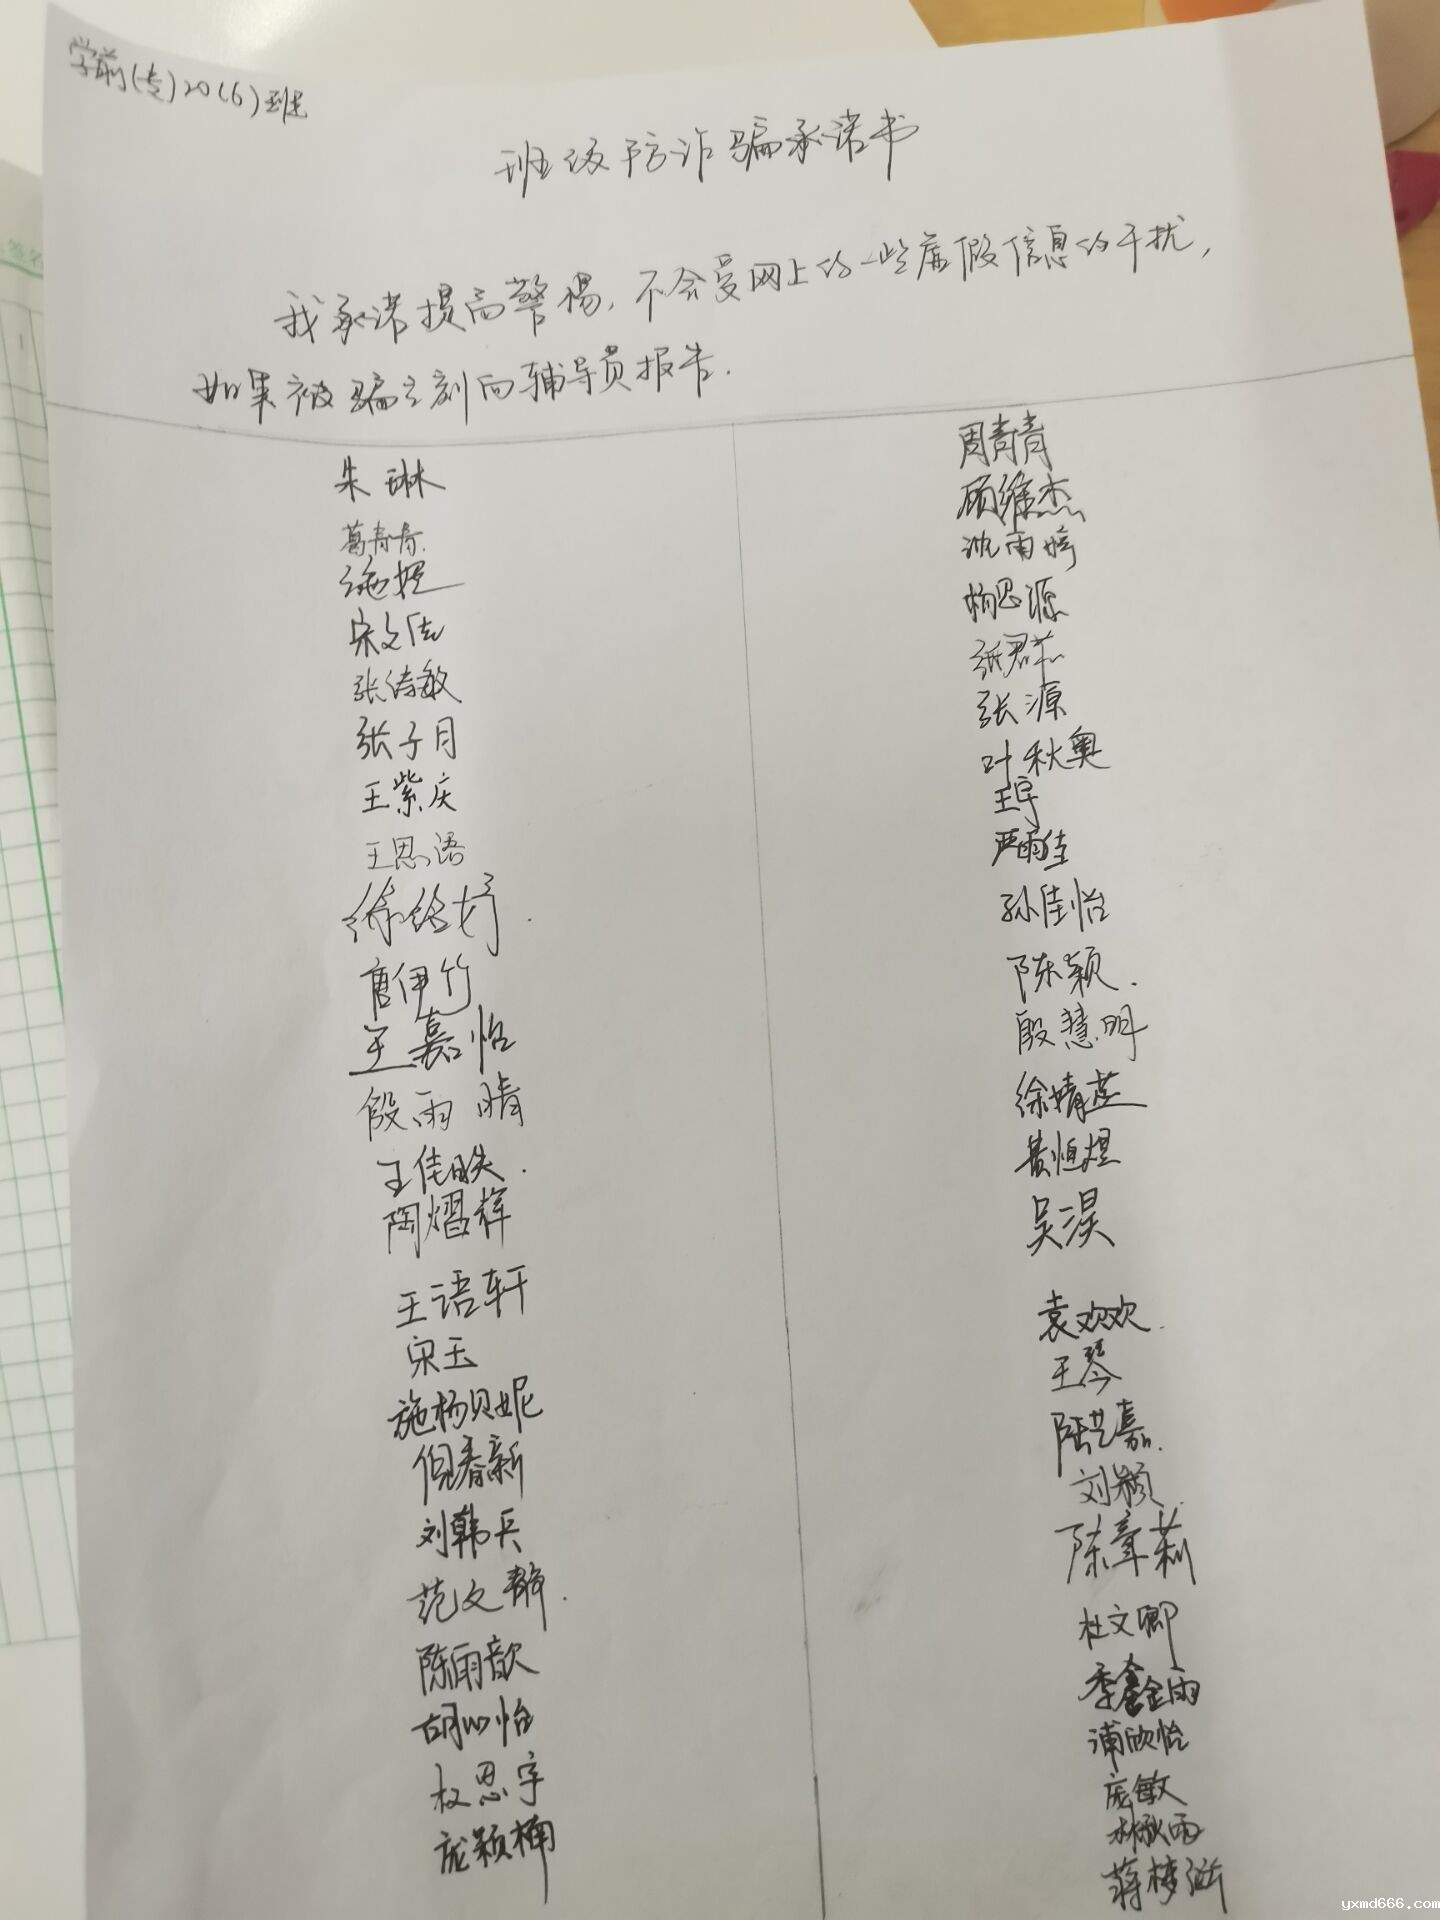 学前(专)20(6)班
班级防诈骗承诺书
我承诺提高警惕,不会受网上的一些虚假信息的干扰,
如果被骗立刻向辅导员报告.
朱琳
葛青青.
施提
宋文佳
张倩敏
张子月
王紫庆
王思语
徐绘妤.
唐伊竹
王嘉怡
殷雨晴
王佳昳.
陶熠辉
王语轩
宋玉
施杨贝妮
倪春新
刘韩兵
范文静.
陈雨歆
胡心怡
权思宇
庞颖楠
周青青
顾维杰
沈雨婷
杨思源
张君
张源
叶秋奥
王宇
严雨佳
孙佳怡
陈颖.
殷慧明
徐婧
黄恒煜
吴淏
袁欢欢.
王琴
陆艺嘉.
刘颖.
陈章莉
杜文卿
季鑫雨
浦欣怡
庞敏
林秋雨
蒋梦渐
yxmd666.com